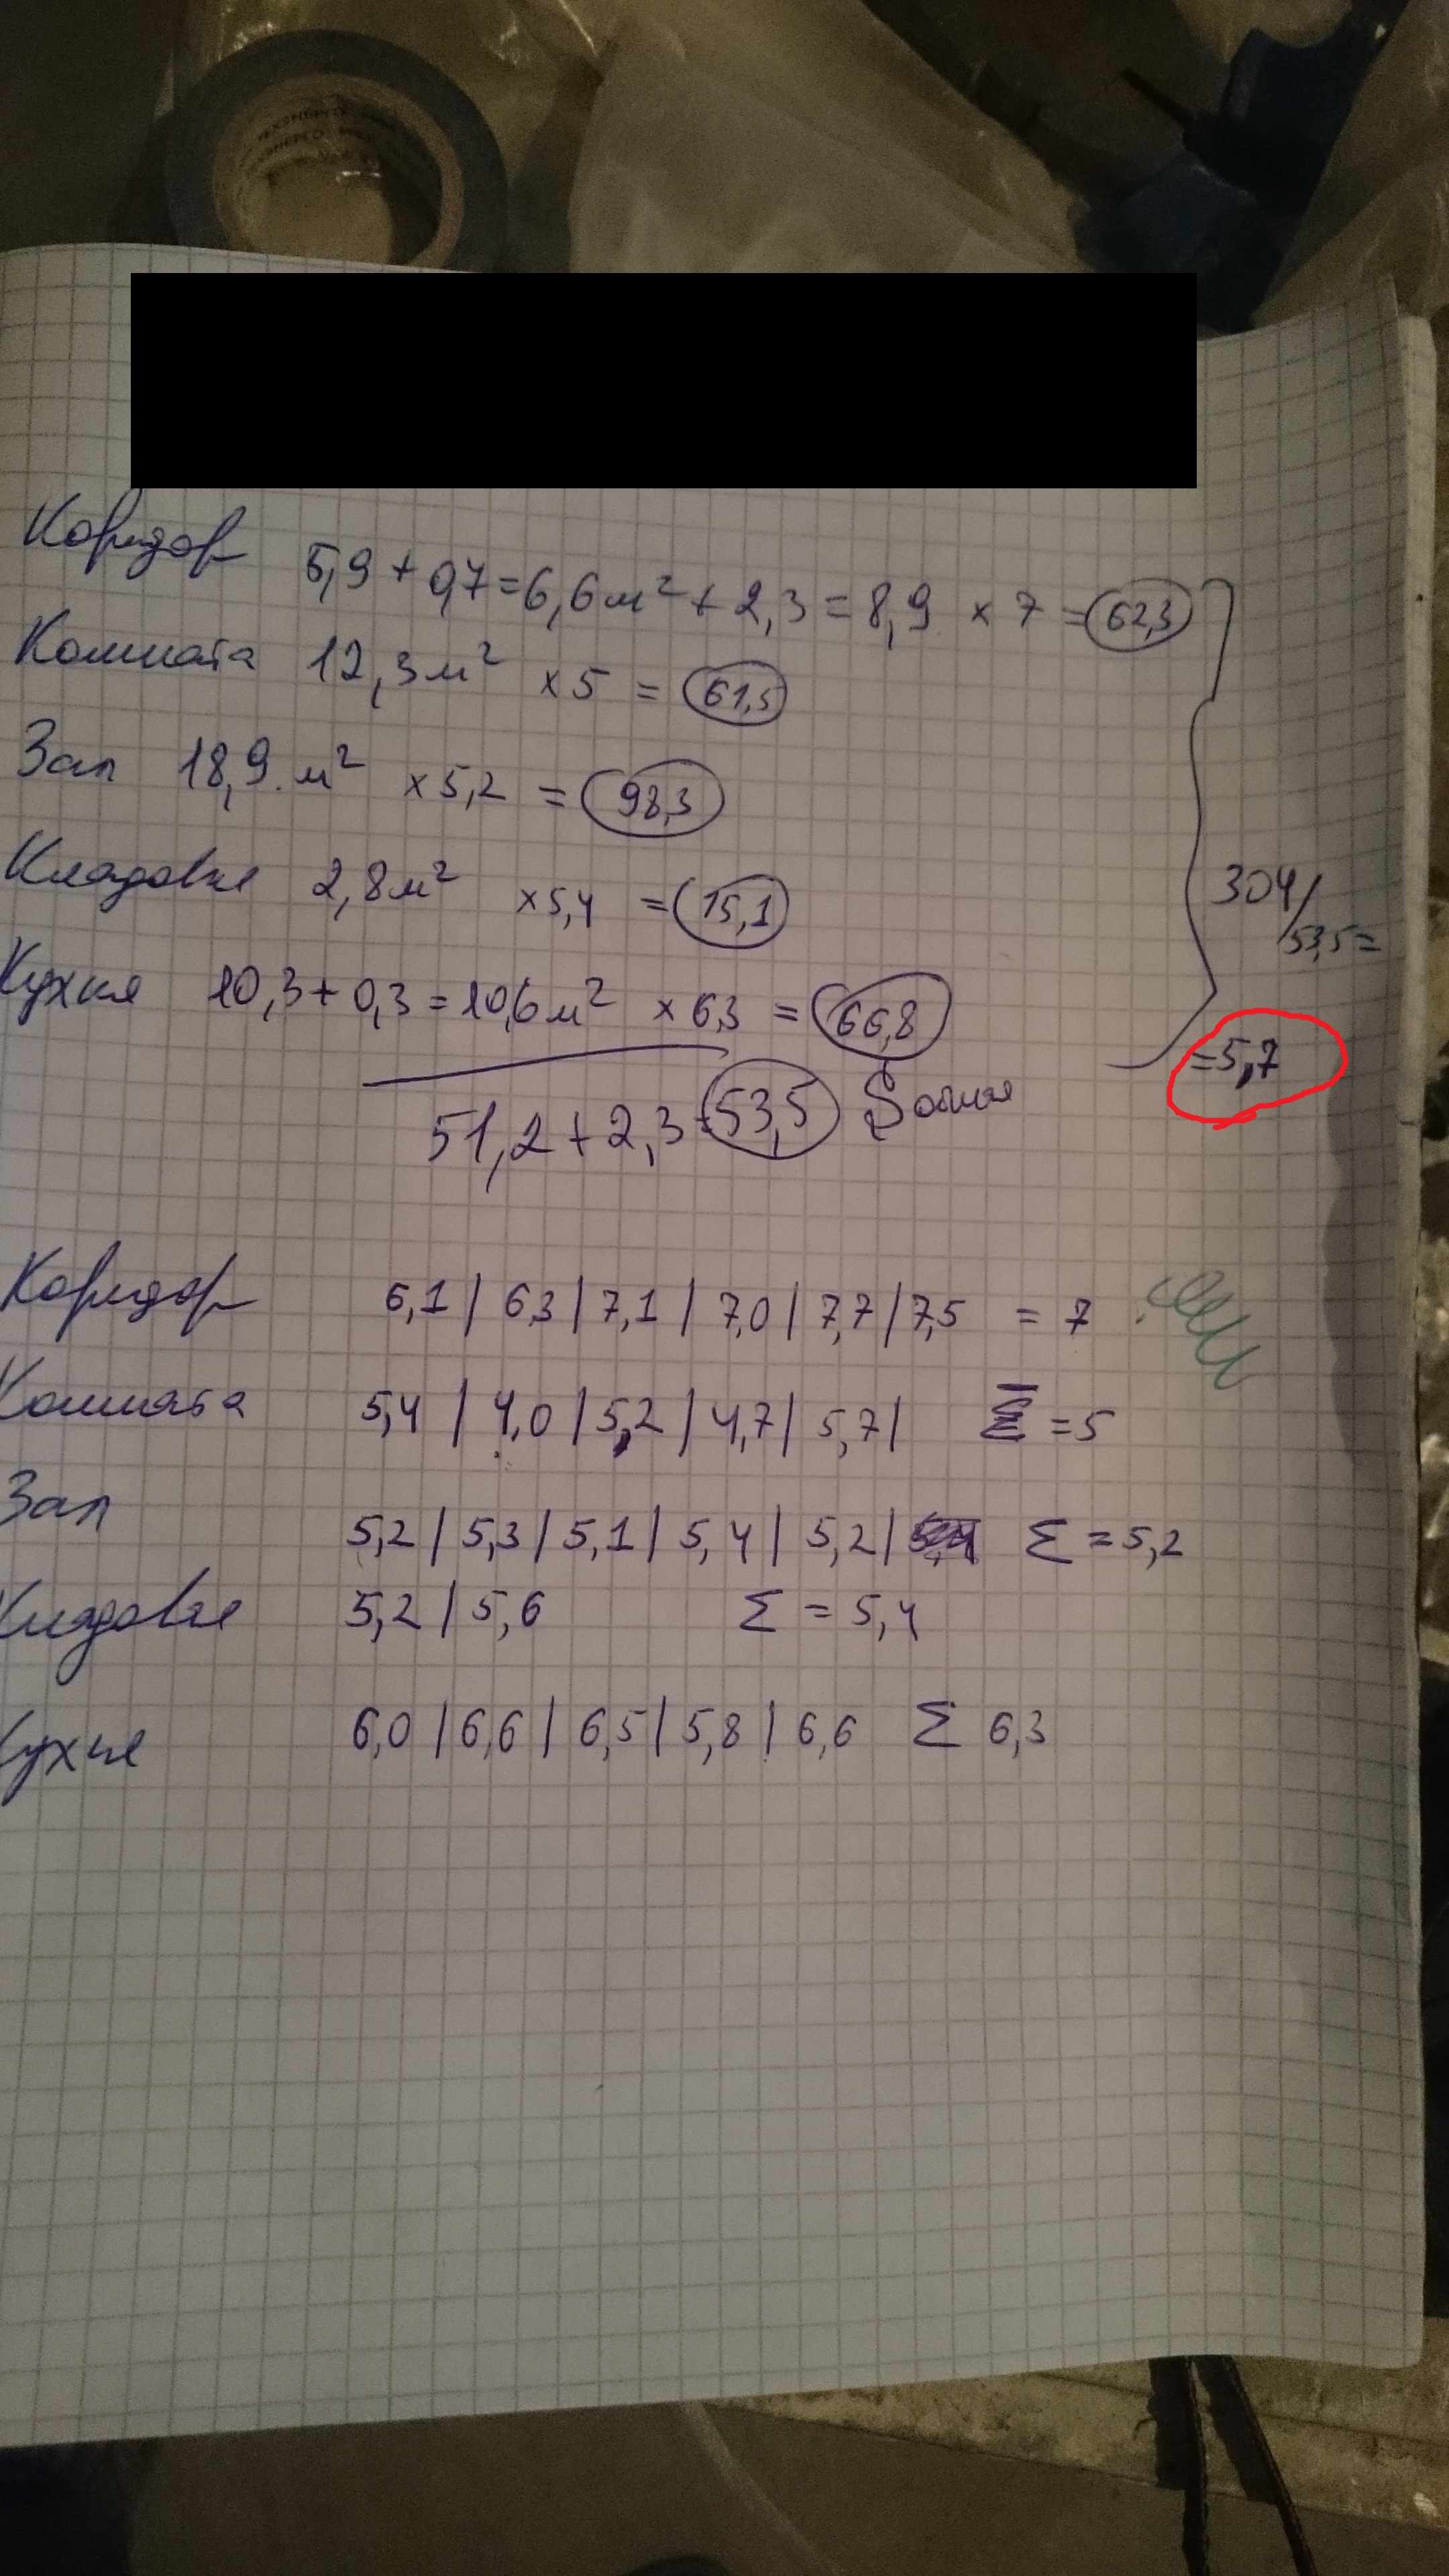 Коридор 5,9 + 0,7 = 6,6 м² + 2,3 = 8,9 × 7 = 62,3
Комната 12,3 м² × 5 = 61,5
Зал 18,9 м² × 5,2 = 98,3
Кладовке 2,8 м² × 5,4 = 15,1
Кухня 10,3 + 0,3 = 10,6 м² × 6,3 = 66,8
304/53,5 =
= 5,7
51,2 + 2,3 = 53,5
Коридор 6,1 | 6,3 | 7,1 | 7,0 | 7,7 | 7,5 = 7
Комната 5,4 | 4,0 | 5,2 | 4,7 | 5,7 | Σ = 5
Зал 5,2 | 5,3 | 5,1 | 5,4 | 5,2 | Σ = 5,2
Кладовке 5,2 | 5,6 Σ = 5,4
Кухня 6,0 | 6,6 | 6,5 | 5,8 | 6,6 Σ 6,3